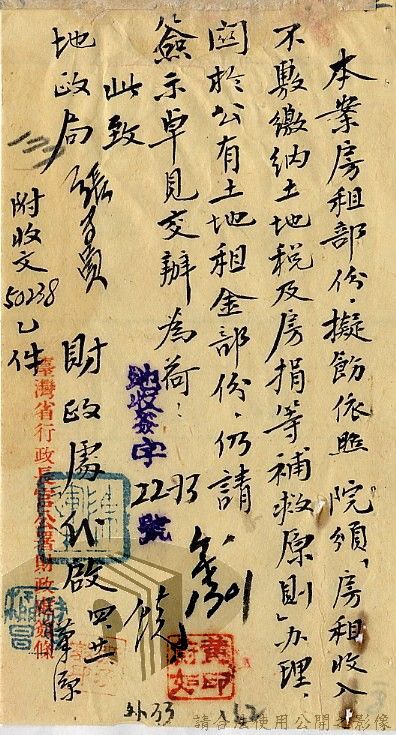 本案房租部份，擬飭依照 院頒「房租收入
不敷繳納土地稅及房捐等補救原則」办理，
關於公有土地租金部份，仍請
簽示卓見交辦為荷！
此致
地政局 張專員
財政處代啟 四、廿
附收文50238乙件
地收簽字 2293 號
臺灣省行政長官公署財政處箋條
黃
印
外33
請合法使用公開之影像